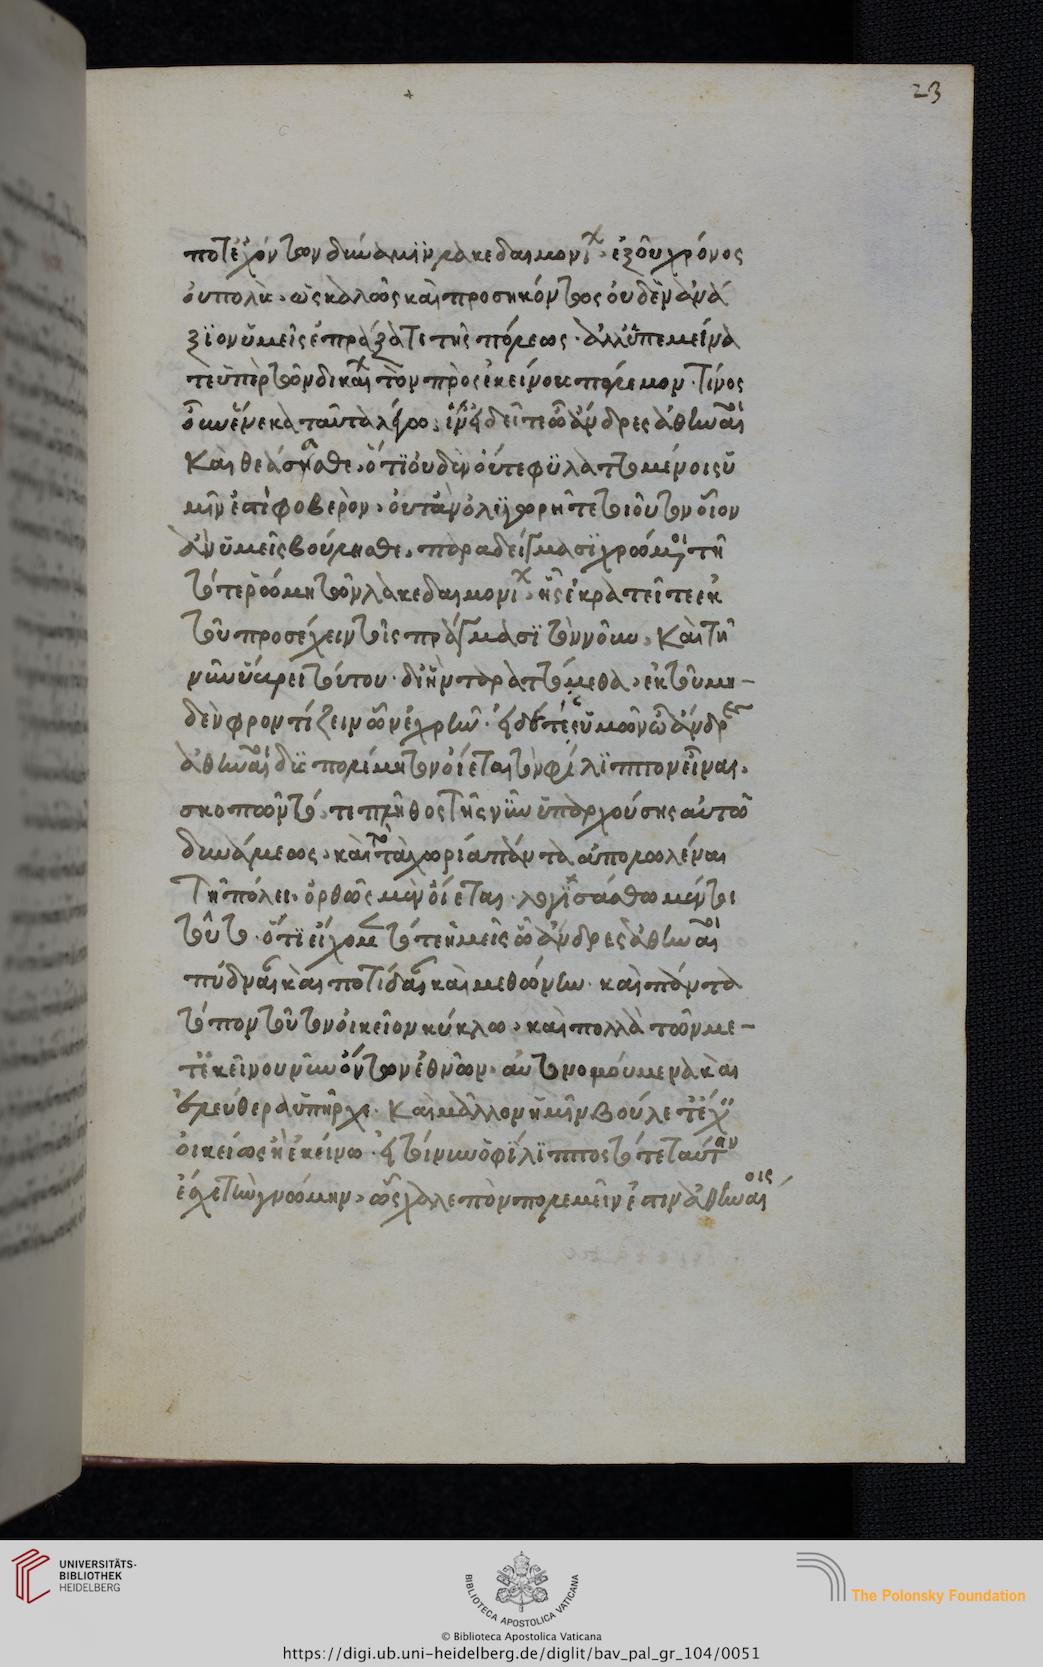 23
ποτ' ἐχόντων δύναμιν λακεδαιμονί ἐξ οὗ χρόνος
οὐ πολὺς ὡς καλῶς καὶ προσηκόντως οὐδὲν ἀνά
ξιον ὑμεῖς ἐπράξατε τῆς πόλεως ἀλλ' ὑπεμείνα
τε ὑπὲρ τῶν δικαί τὸν πρὸς ἐκείνους πόλεμον τίνος
οὖν ἕνεκα ταῦτα λέγω ἵν' εἰδῆτε ὦ ἄνδρες ἀθηναῖ
καὶ θεάσησθε ὅτι οὐδὲν οὔτε φυλαττομένοις ὑ
μῖν ἐστὶ φοβερὸν οὔτ' ἂν ὀλιγωρῆτε τοιοῦτον οἷον
ἂν ὑμεῖς βούλησθε παραδείγμασι χρώμενοι τῆ
τότε ῥώμη τῶν λακεδαιμονί ἧς ἐκρατεῖτε ἐκ
τοῦ προσέχειν τοῖς πράγμασι τὸν νοῦν καὶ τῆ
νῦν ὕβρει τούτου δι' ἣν ταραττόμεθα ἐκ τοῦ μη-
δὲν φροντίζειν ὧν ἐχρῆν εἰ δέ τις ὑμῶν ὦ ἄνδρες
ἀθηναῖ δυσπολέμητον οἴεται τὸν φίλιππον εἶναι
σκοπῶν τό τε πλῆθος τῆς νῦν ὑπαρχούσης αὐτῶ
δυνάμεως καὶ τὸ τὰ χωρία πάντα ἀπολωλέναι
τῆ πόλει ὀρθῶς μὲν οἴεται λογισάσθω μέντοι
τοῦτο ὅτι εἴχομεν τότε ἡμεῖς ὦ ἄνδρες ἀθηναῖ
πύδναν καὶ ποτίδαιαν καὶ μεθώνην καὶ πάντα
τόπον τοῦτον οἰκεῖον κύκλω καὶ πολλὰ τῶν με-
τ' ἐκείνου νῦν ὄντων ἐθνῶν αὐτονομούμενα καὶ
ἐλεύθερα ὑπῆρχε καὶ μᾶλλον ἡμῖν βούλετ' ἔχειν
οἰκείως ἢ ἐκείνω εἰ τοίνυν ὁ φίλιππος τότε ταύτην
ἔσχε τὴν γνώμην ὡς χαλεπὸν πολεμεῖν ἐστιν ἀθηναίοις
UNIVERSITÄTS-
BIBLIOTHEK
HEIDELBERG
BIBLIOTECA APOSTOLICA VATICANA
The Polonsky Foundation
© Biblioteca Apostolica Vaticana
https://digi.ub.uni-heidelberg.de/diglit/bav_pal_gr_104/0051